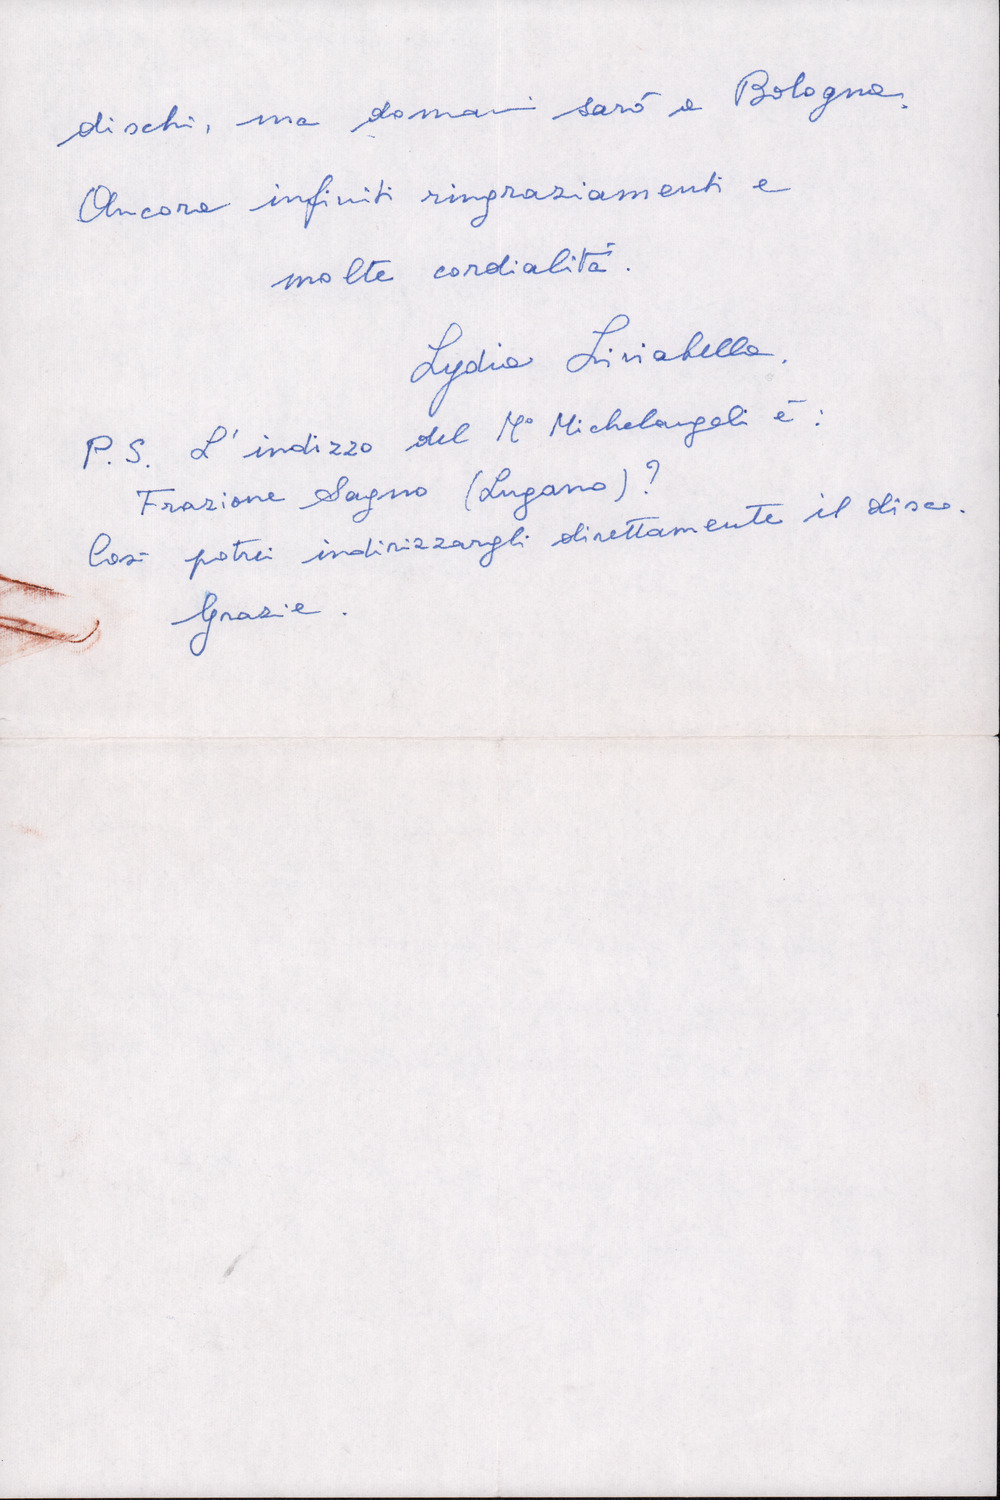 dischi, ma domani sarò a Bologna.
Ancora infiniti ringraziamenti e
molte cordialità.
Lydia Liviabella.
P.S. L'indizzo del M° Michelangeli è:
Frazione Sagno (Lugano)?
Così potrei indirizzargli direttamente il disco.
Grazie.